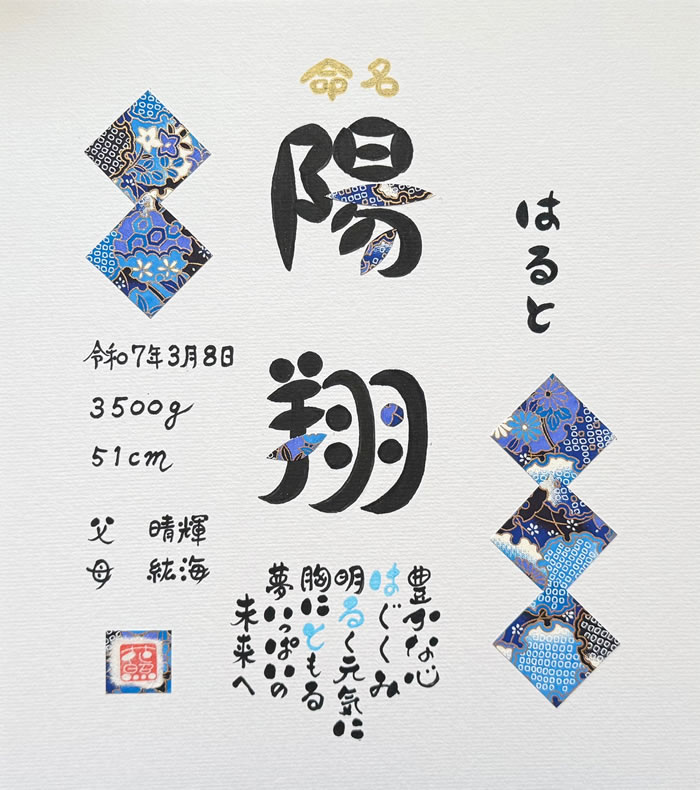 命名
陽翔
はると
令和7年3月8日
3500g
51cm
父 晴輝
母 紘海
豊かな心
はぐくみ
明るく元気に
胸にともる
夢いっぱいの
未来へ